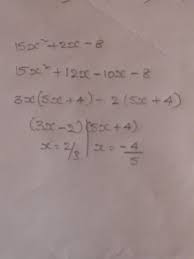 15x² + 2x - 8
15x² + 12x - 10x - 8
3x(5x + 4) - 2(5x + 4)
(3x - 2)(5x + 4)
x = 2/3 | x = -4/5